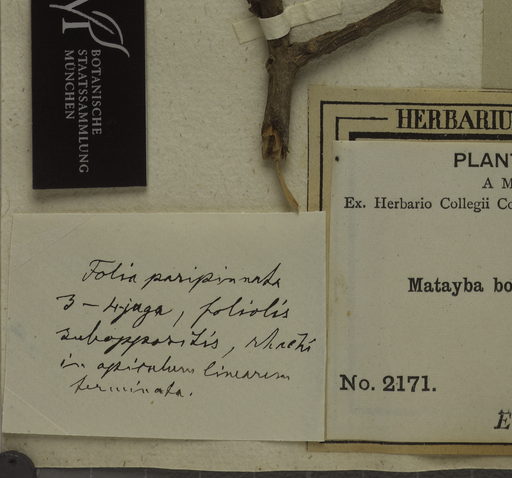 BOTANISCHE
STAATSSAMMLUNG
MÜNCHEN
HERBARIU
PLANT
A M
Ex. Herbario Collegii Co
Matayba bo
No. 2171.
E
Folia paripinnata
3-4juga, foliolis
suboppositis, rhachi
in apiculum linearem
terminata.